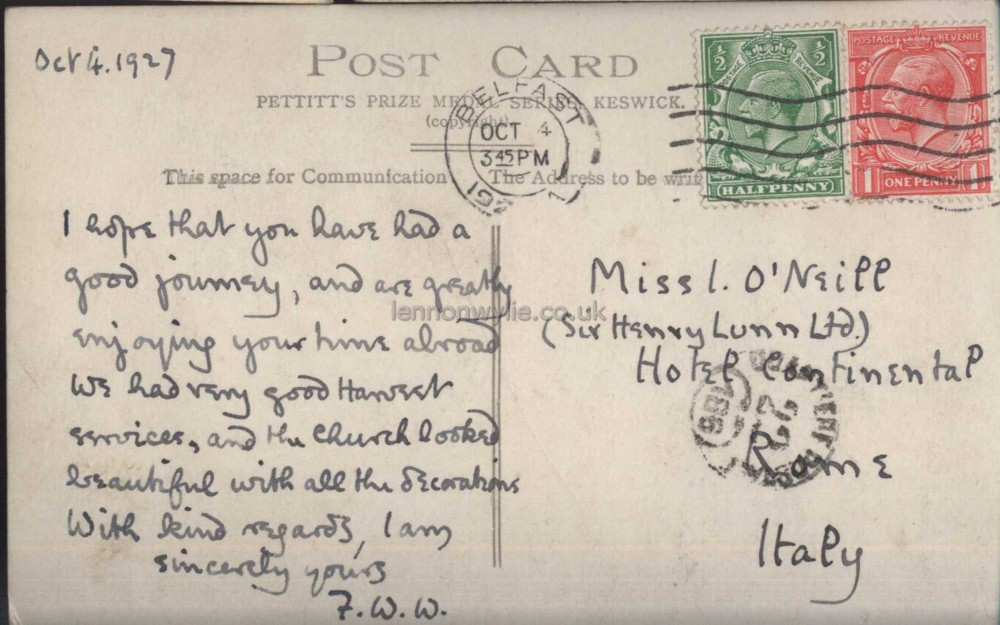 Oct 4. 1927
POST CARD
PETTITT'S PRIZE MEDAL SERIES, KESWICK.
(copyright)
This space for Communication
The Address to be writ
BELFAST
OCT 4
3 45 PM
192
½ ½
POSTAGE REVENUE
HALFPENNY
POSTAGE REVENUE
1 ONE PENNY 1
I hope that you have had a
good journey, and are greatly
enjoying your time abroad
We had very good Harvest
services, and the Church looked
beautiful with all the decorations
With kind regards, I am
sincerely yours
F.W.W.
Miss I. O'Neill
(Sir Henry Lunn Ltd.)
Hotel Continental
Rome
Italy
lennonwylie.co.uk